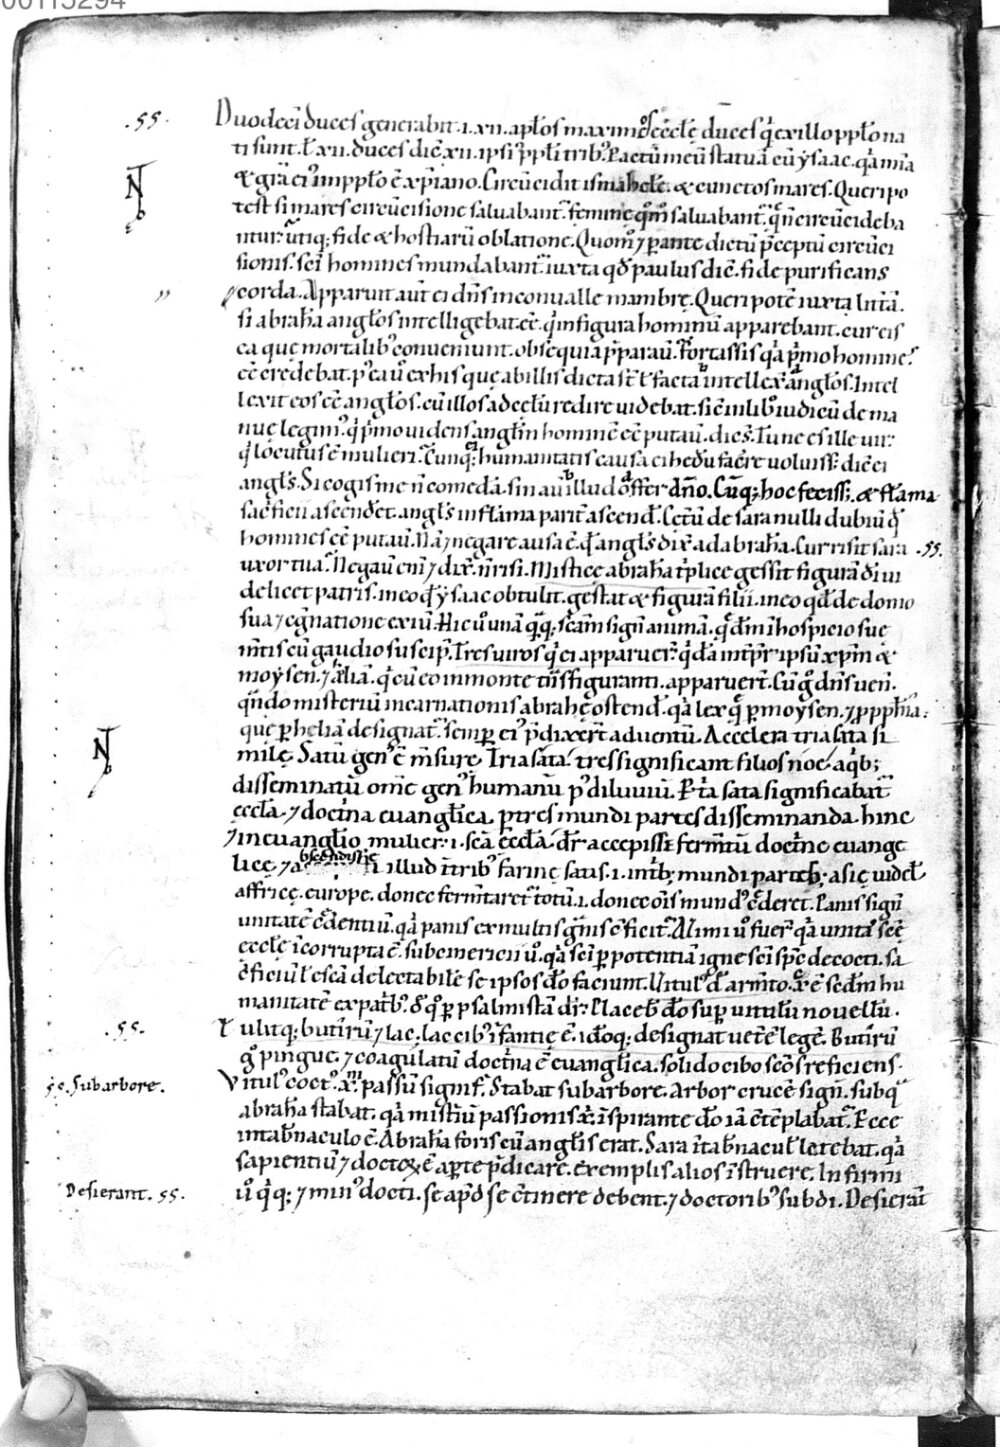 00115294
.55. Duodecī duces generabit .i. xii. ap̄los maximos ęcclę duces q̄ ex illo pp̄lo na
ti sunt. ł xii. duces dic̄ xii. ipsi p̄pli trib᾽. Pactū meū statuā cū ysaac. q̄a mīa
& gr̄a ei᾽ in pp̄lo ē xp̄iano. Circūcidit ismahelē. & cunctos mares. Queri po
test si mares circūcisione salvabant᾽. feminę quōm salvabant᾽. q̄ n̄ circūcideba
intur; utiq; fide & hostiarū oblatione. Quom ⁊ p̄ ante dictū p̄ceptū circūci
sionis. sc̄i homines mundabant᾽. iuxta qđ paulus dic̄. fide purificans
⁊ corda. Apparuit aut̄ ei dn̄s in convalle mambrę. Queri potē iuxta litt̄ā.
si abrahā angl̄os intelligebat eē. q̄ in figura hominū apparebant. cur eis
ea que mortalib᾽ conveniunt. obsequia p̄paraū. Fortassis q̄a p̄mo homines
eē credebat. p᾽ea ū ex his quę ab illis dicta st̄ ł facta intellex̄ angl̄os. Intel
lexit eos eē angl̄os. cū illos ad cęlū redire videbat. sic̄ in lib᾽ iudicū de ma
nuę legim᾽. q̄ p̄mo videns angl̄m hominē eē putaū. dices. Tu ne es ille vir
q̄ locutus ē mulieri. Cunq; humanitatis causa ei hędū facere voluiss; dic̄ ei
angl̄s. Si cogis me n̄ comedā. sin aū illud offer dn̄o. Cūq; hoc feciss; & flāma
sacficii ascenderet. angl̄s in flāma parit̄ ascend̄. Cet̄ū de sara nulli dubiū q̄
homines eē putaū. Nā ⁊ negare ausa ē. q̄ angl̄s dix̄ ad abrahā. Cur risit sara .55.
uxor tua. Negaū eni ⁊ dix̄. n̄ risi. Misticę abrahā t̄plicē gessit figurā dī vi
delicet patris. in eo qđ ysaac obtulit. gestat & figurā filii. in eo qđ de domo
sua ⁊ cognatione exiū. Hic ū unā q̄q. sc̄am sign̄ animā. q̄ dm̄ ī hospicio suę
m̄tis cū gaudio suscip̄. Tres viros q̄ ei apparuer̄ q̄dā int̄p̄r ipsū xp̄m &
moysen. ⁊ hliā. q̄ cū eo in monte t̄nsfigurati. apparuert̄. Cū ḡ dn̄s ven̄.
q̄ndo misteriū incarnationis abrahę ostend̄. q̄a lex q̄ p̄ moysen. ⁊ p̄pphīa.
que p̄ heliā designat᾽. semp̄ ei᾽ p̄dixert̄ adventū. Accelera tria sata si
milę. Satū gen᾽ ē m̄surę. Tria sata. tres significant filios noe. a q̄b;
disseminatū om̄e gen᾽ humanū p᾽ diluviū. P t̄a sata significabat᾽
eccłā. ⁊ doctina euanglica. p̄ tres mundi partes disseminanda. hinc
⁊ in euanglio mulier .i. sc̄ā ęccłā. dr̄ accepisse ferm̄tū doctinę euange
licę ⁊ abscondisse illud in trib᾽ farinę satis .i. in t̄b; mundi partib; asię videł
affricę. europę. donec ferm̄taret᾽ totū .i. donec om̄is mund᾽ crederet. Panis sign̄
unitatē credentiū. q̄a panis ex multis ḡnis eficit᾽. Alimi ū fuer̄ q̄a unitas sc̄ę
ęcclę īcorrupta ē. subcinericii ū. q̄a sc̄i p̄ potentiā igne sc̄i sp̄c decocti. sa
crficiū ł escā delectabilē se ipsos dō faciunt. Vitul᾽ de armto. xc̄ ē scdm̄ hu
manitatē ex patib᾽. d q᾽ p̄ psalmistā dr̄. Placeb̄ dō sup̄ vitulū novellū.
.55. Tulitq; butirū ⁊ lac. lac cib᾽ īfantię ē. idoq; designat vetē legē. Butirū
ḡ pingue. ⁊ coagulatū doctina ē euanglica. solido cibo sc̄os reficiens.
⁊c. Sub arbore. Vitul᾽ coct᾽. xp̄i passū signif. Stabat sub arbore. Arbor crucē sign̄. sub q̄
abrahā stabat. q̄a mistiū passionis xp̄i īspirante dō iā cōtēplabat᾽. Ecce
in tabnaculo ē. Abrahā foris cū anglis erat. Sara ī tabnacul latebat. q̄a
sapientiū ⁊ doctoꝝ ē aperte p̄dicare. exemplis alios īstruere. Infirmi
Desierant. 55. ū q̄q; ⁊ min᾽ docti. se apd̄ se cōtinere debent. ⁊ doctorib᾽ subdi. Desierāt